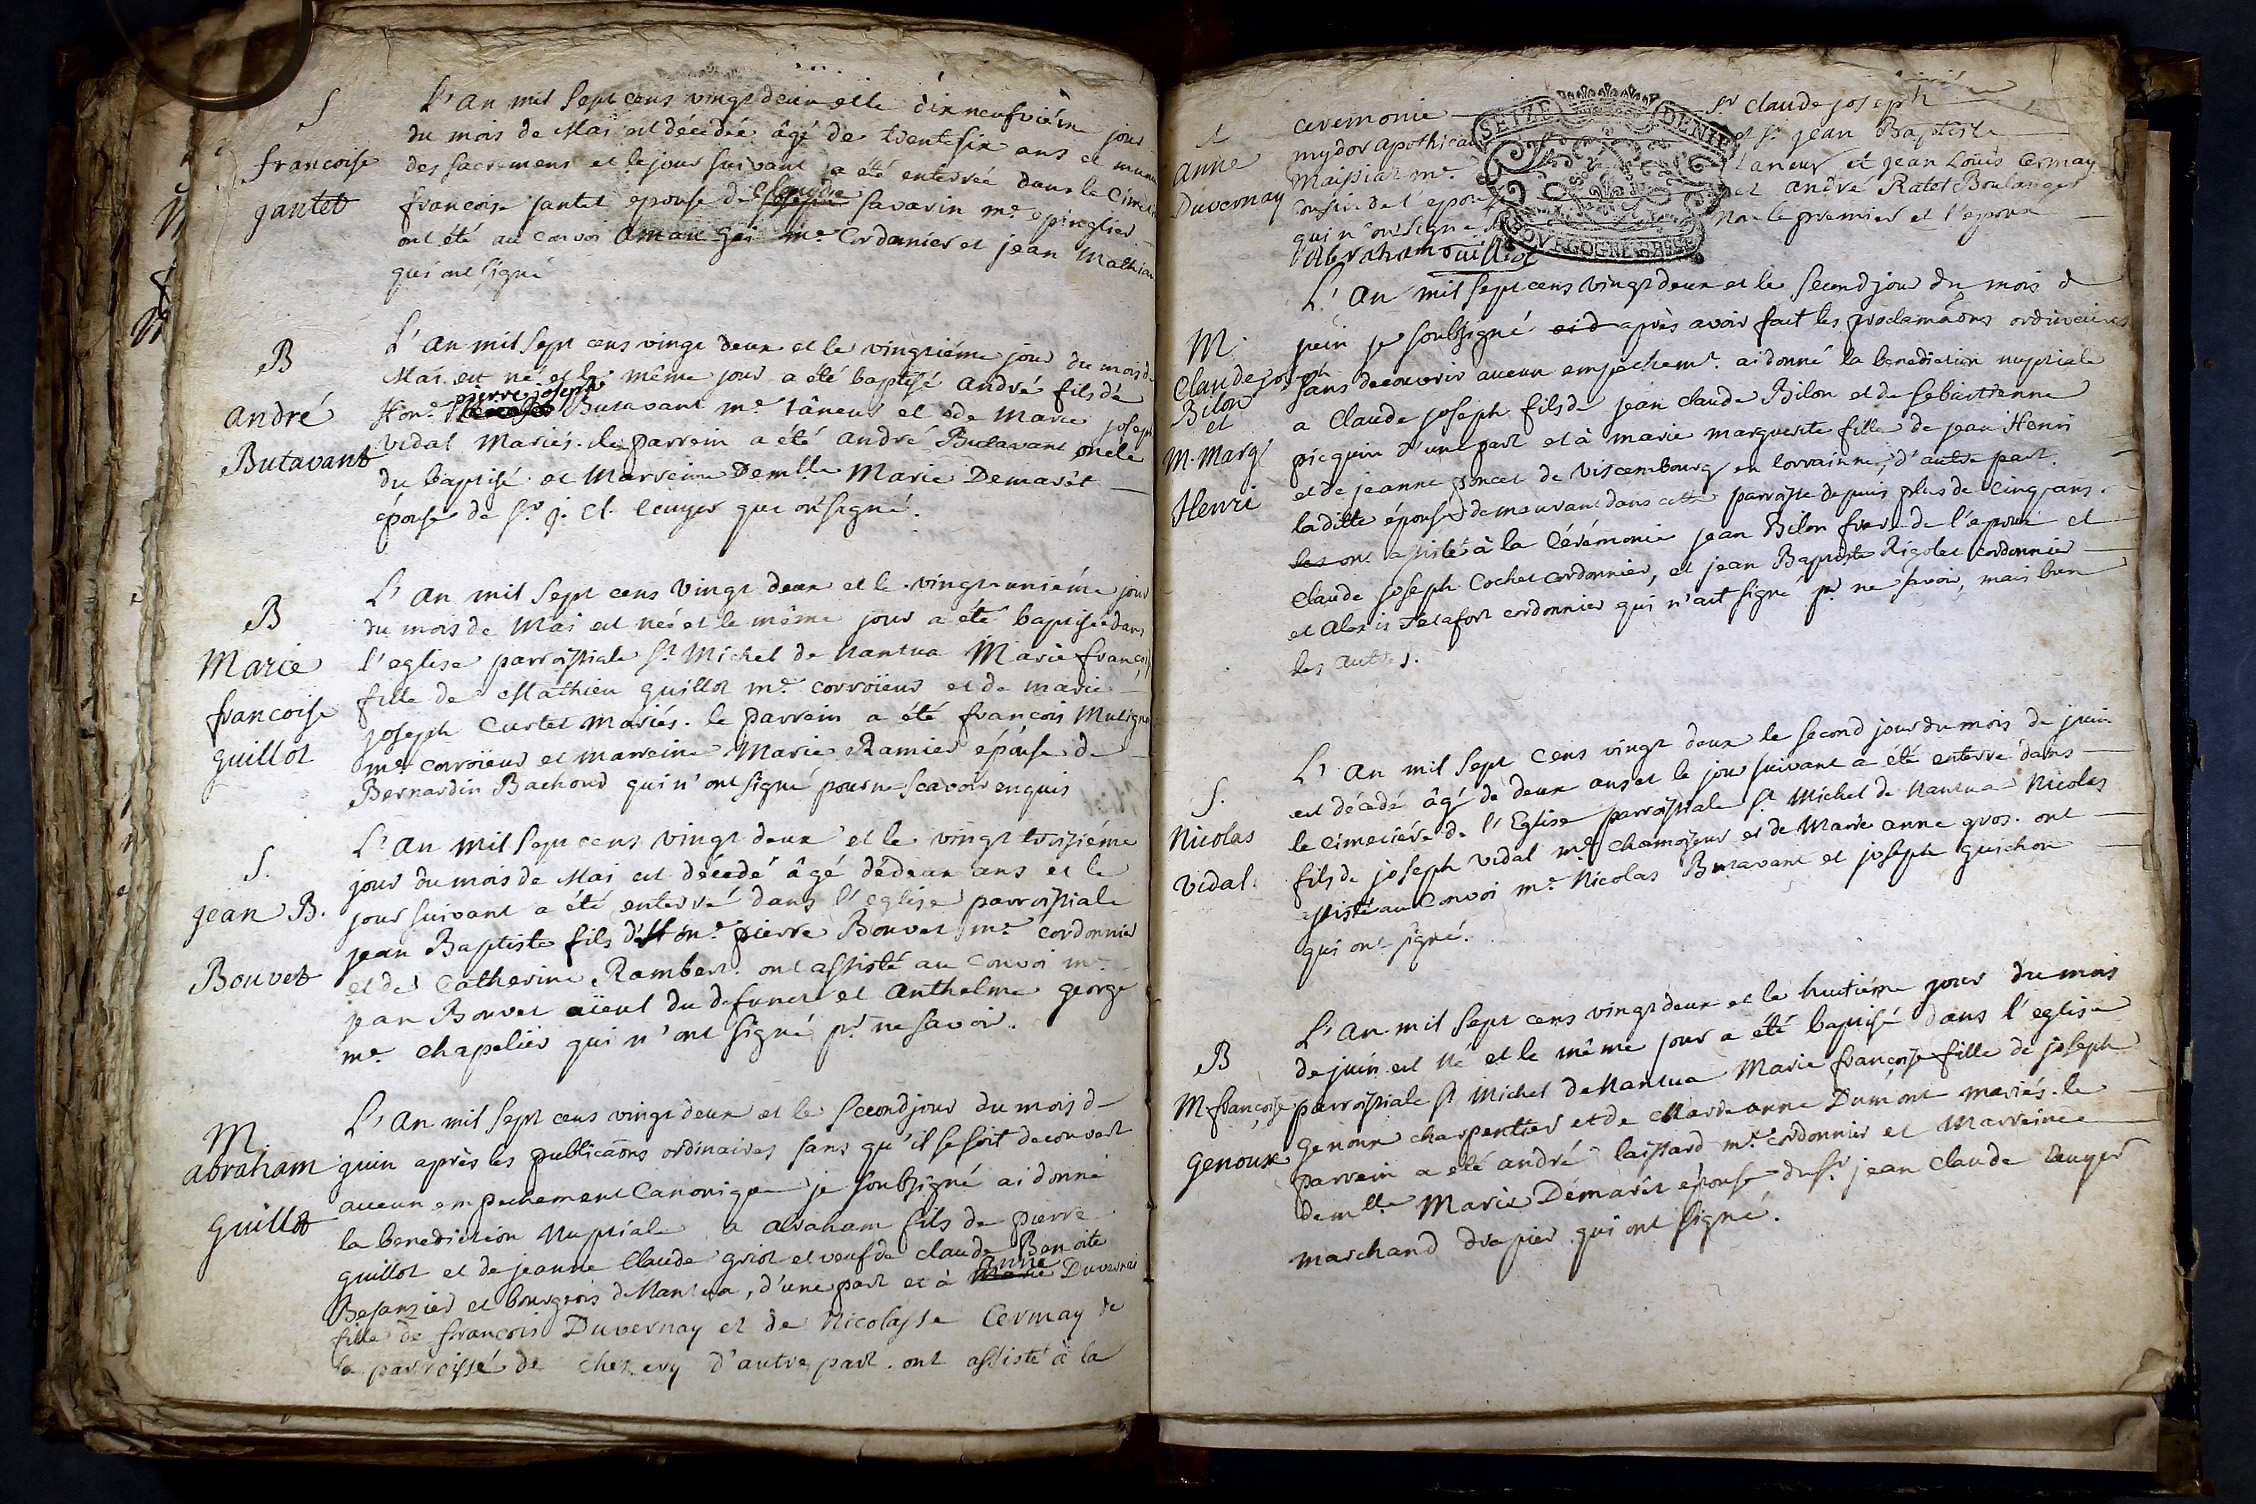 S
francoise
jantet
L'an mil sept cens vingt deux et le dix neufvieme jour
du mois de Mai est décédée âgé de trente six ans et munie
des sacremens et le jour suivant a été enterrée dans le Cimet
francoise jantet epouse de claudre savarin me. epinglier
ont été au convoi me. Cordonier et jean Mathieu
qui ont signé
B
andré
Butavant
L'an mil sept cens vingt deux et le vingtiéme jour du mois de
Mai est né et le même jour a été baptisé andré fils de
Hone. pierre joseph Butavant me. tâneur et de Marie joseph
vidal Mariés. le parrein a été andré Butavant oncle
du baptisé et Marreine Demlle Marie Demarêt
épouse de Sr. j. cl. Ecuyer qui ont signé.
B
Marie
francoise
guillot
L'an mil sept cens vingt deux et le vingt-uniéme jour
du mois de Mai est née et le même jour a été baptisée dans
l'eglise parroissiale St. Michel de Nantua Marie françois
fille de Mathieu guillot me. corroïeur et de marie
joseph Curtet Mariés. le parrein a été françois
me. corroïeur et marreine Marie Ramier épouse de
Bernardin Bachoud qui n'ont signé pour ne scavoir enquis
S.
jean B.
Bouvet
L'an mil sept cens vingt deux et le vingt troisiéme
jour du mois de Mai est décédé âgé de deux ans et le
jour suivant a été enterré dans l'eglise parroissiale
jean Baptiste fils d'Hone. pierre Bouvet me. cordonnier
et de Catherine Rambert. ont assisté au convoi me.
jean Bouvet aïeul du defunct et Anthelme george
me. chapelier qui n'ont signé pr. ne savoir.
M.
abraham
guillot
L'an mil sept cens vingt deux et le second jour du mois de
juin après les publicaôns ordinaires sans qu'il se soit decouvert
aucun empechement Canonique je soubsigné ai donné
la benediction Nuptiale a abraham fils de pierre
guillot et de jeanne Claude griot et veuf de claude Benoite
Besanzier et bourgeois de Nantua, d'une part et à Marie anne Duvernai
fille de francois Duvernay et de Nicolasse Cermay de
la parroisse de chezery d'autre part. ont assisté à la
S
anne
Duvernay
ceremonie Sr claude joseph
mydor apothicai et Sr. jean Baptiste
Maissiat me. taneur et jean Loüis Cermay
cousin de l'epouse et andré Ratet Boulanger
qui n'ont signé Non le premier et l'epoux
Abraham Guilliot
SEIZE DENIE
BOURGOGNE BRESSE
M.
Claude joseph
Bilon
et
M. Marg
Henri
L'an mil sept cens vingt deux et le second jour du mois de
juin je soubsigné aid après avoir fait les proclamaôns ordinaires
sans decouvrir aucun empéchemt. ai donné la benediction nuptiale
a claude joseph fils de jean claude Bilon et de sebastienne
picquin d'une part et à marie marguerite fille de jean Henri
et de jeanne poncet de viscembourg en lorrainne, d'autre part.
laditte épouse demeurant dans cette parroisse depuis plus de cinq ans.
les ont assisté à la Cérémonie jean Bilon frere de l'epoux et
Claude joseph Cochet cordonnier, et jean Baptiste Rigolet cordonnier
et alexis cordonnier qui n'ait signé pr. ne savoir, mais bien
les autres.
S.
Nicolas
vidal.
L'an mil sept cens vingt deux le second jour du mois de juin
est décédé âgé de deux ans et le jour suivant a été enterré dans
le cimetiére de l'Eglise parroissiale St. Michel de Nantua Nicolas
fils de joseph vidal me. chamoiseur et de Marie anne gros. ont
assisté au Convoi me. Nicolas Butavant et joseph guichon
qui ont signé.
B
M. françoise
genoux
L'an mil sept cens vingt deux et le huitiéme jour du mois
de juin est né et le même jour a été baptisé dans l'eglise
parroissiale St Michel de Nantua Marie françoise fille de joseph
genoux charpentier et de Marie anne Dumont mariés. le
parrein a été andré laissard me. cordonnier et Marreine
demlle Marie Démarêt épouse du Sr. jean claude Ecuyer
marchand drapier qui ont signé.